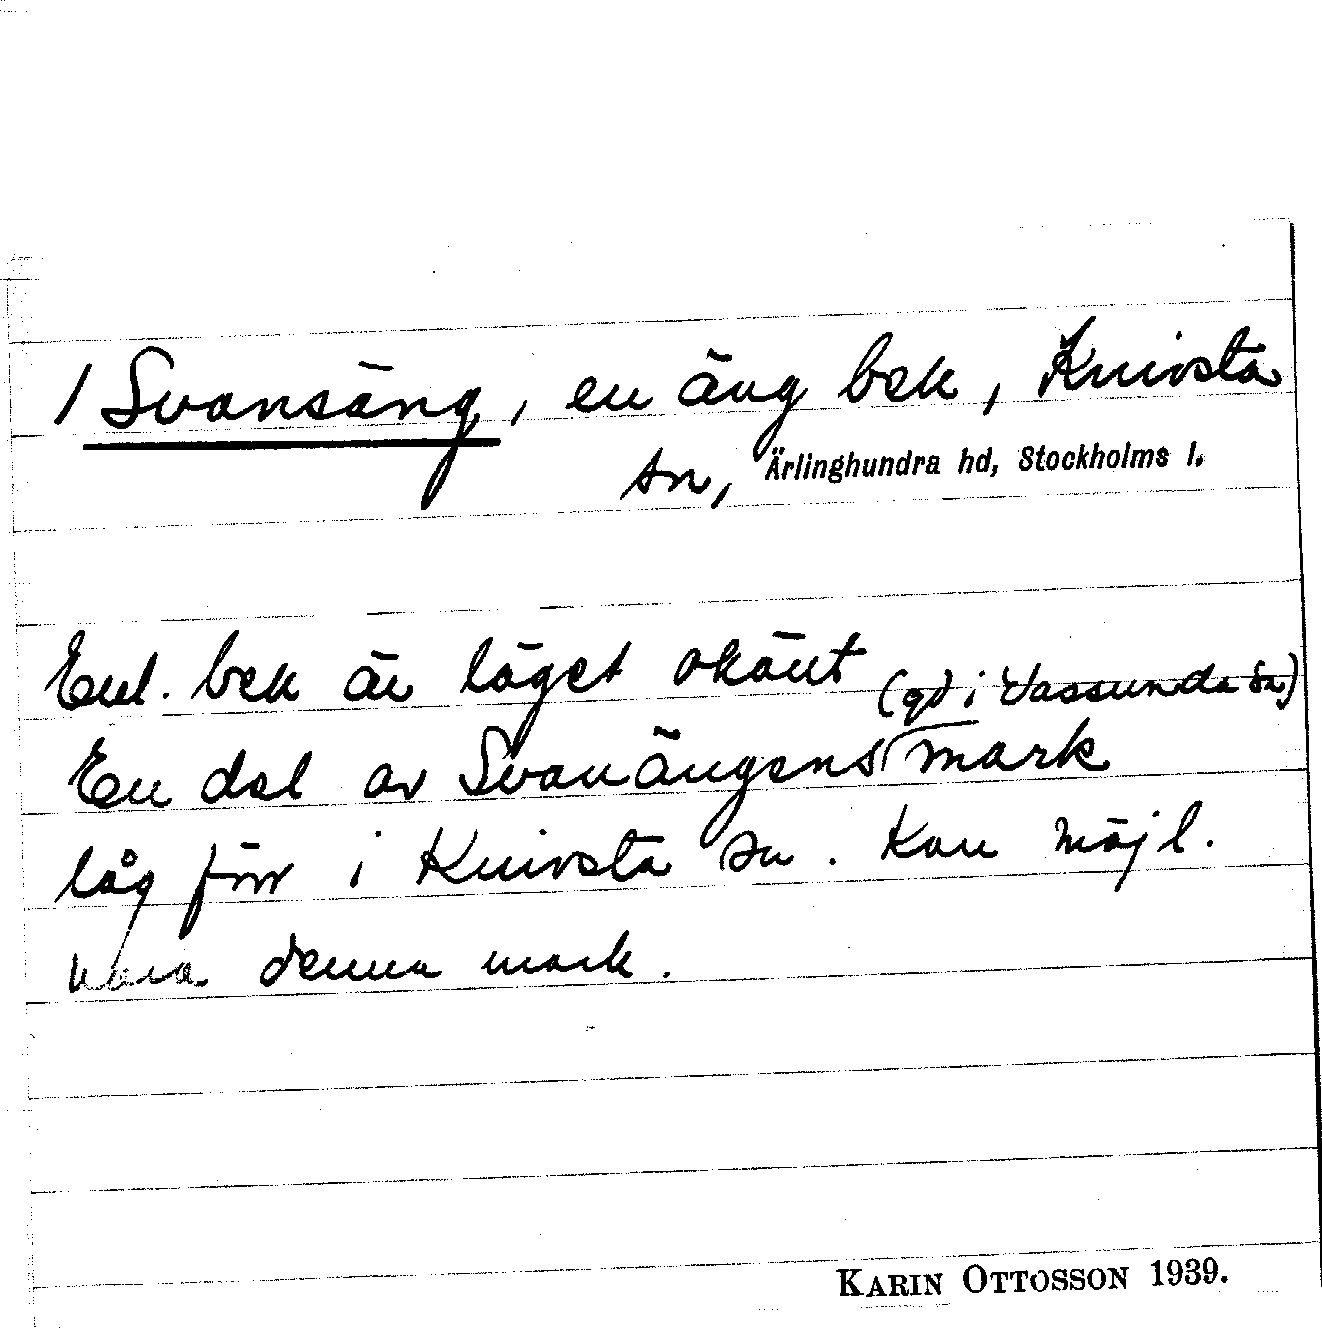 / Svansäng, en äng bek, Knivsta
sn, Ärlinghundra hd, Stockholms l.
Enl. bek är läget okänt
(gd i Vassunda sn)
En del av Svanängens mark
låg förr i Knivsta sn. Kan möjl.
vara denna mark.
KARIN OTTOSSON 1939.